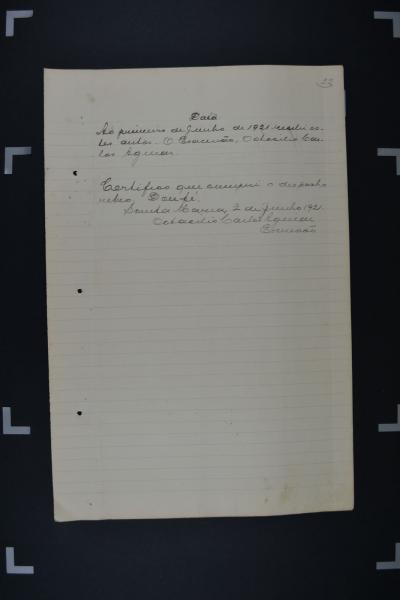 Data
Ao primeiro de Junho de 1921 recebi es-
tes autos. O Escrivão, Octacilio Car-
los
Certifico que cumpri o despacho
retro, Dou fé.
Santa Maria, 2 de Junho 1921.
Octacilio Carlos
Escrivão